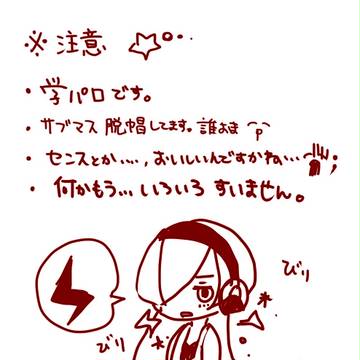 ※ 注意
・学パロです。
・サブマス 脱帽してます。誰よお前
・センスとか・・・・, おいしいんですかね・・・
・何かもう・・・いろいろ すいません。
びり
びり